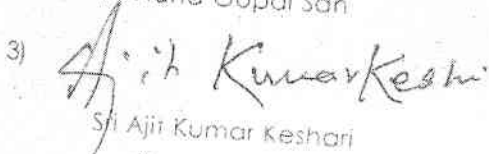 Gopal Sah
3)
Ajit Kumar Keshri
Sri Ajit Kumar Keshari